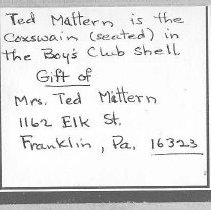 Ted Mattern is the
Coxswain (seated) in
the Boy's Club Shell
Gift of
Mrs. Ted Mattern
1162 Elk St.
Franklin, Pa. 16323